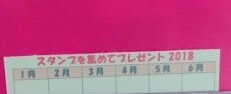 スタンプを集めてプレゼント 2018
1月 2月 3月 4月 5月 6月